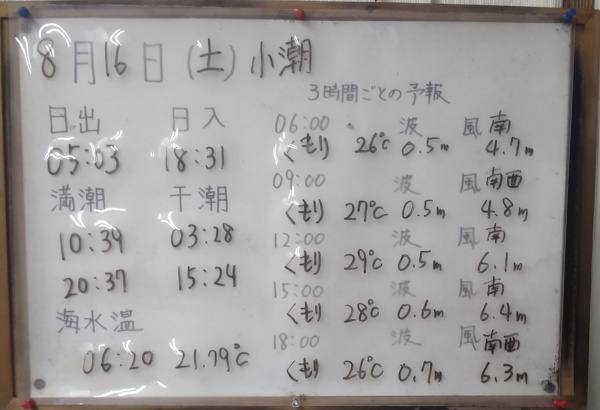 8月16日(土)小潮
日出 日入
05:03 18:31
満潮 干潮
10:39 03:28
20:37 15:24
海水温
06:20 21.79℃
3時間ごとの予報
06:00 波 風 南
くもり 26℃ 0.5m 4.7m
09:00 波 風 南西
くもり 27℃ 0.5m 4.8m
12:00 波 風 南
くもり 29℃ 0.5m 6.1m
15:00 波 風 南
くもり 28℃ 0.6m 6.4m
18:00 波 風 南西
くもり 26℃ 0.7m 6.3m